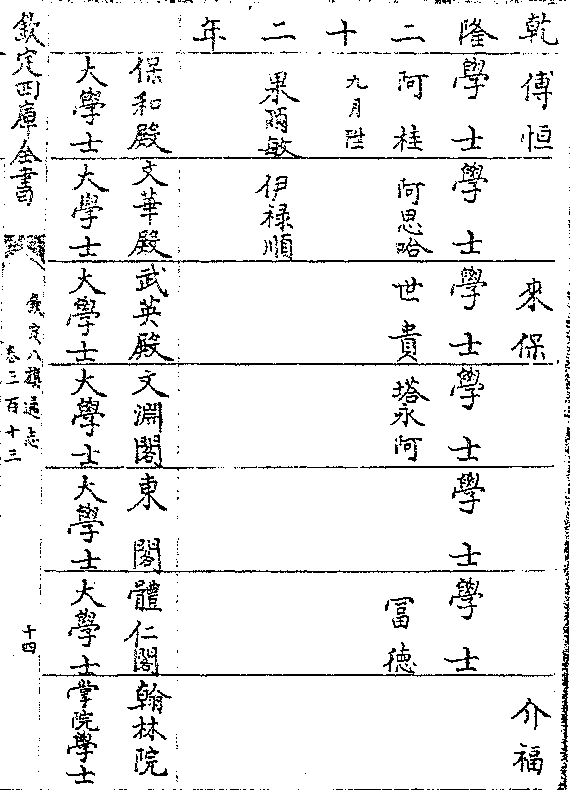 乾隆二十二年
傅恒　來保　介福
學士　學士　學士　學士　學士　學士
阿桂　阿思哈　世貴　塔永阿　冨德
九月陞
果爾敏　伊禄順
保和殿　文華殿　武英殿　文淵閣　東閣　體仁閣　翰林院
大學士　大學士　大學士　大學士　大學士　大學士　掌院學士
欽定四庫全書
欽定八旗通志
卷三百十三
十四